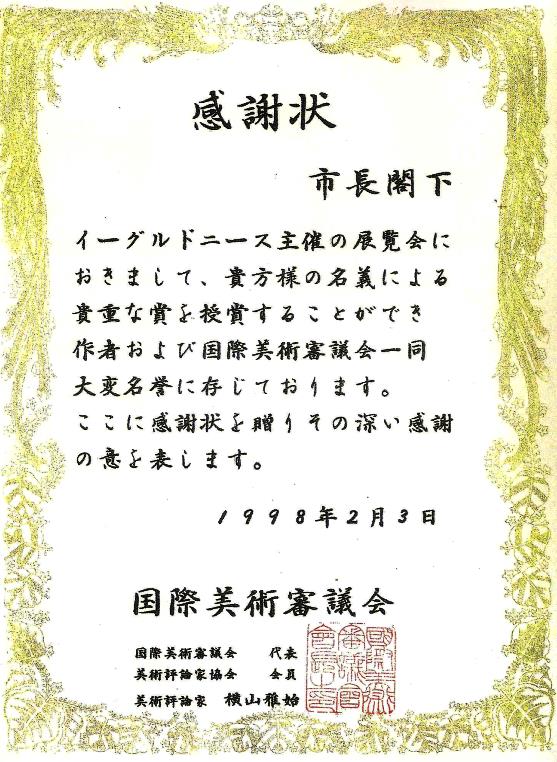 感謝状
市長閣下
イーグルドニース主催の展覧会に
おきまして、貴方様の名義による
貴重な賞を授賞することができ
作者および国際美術審議会一同
大変名誉に存じております。
ここに感謝状を贈りその深い感謝
の意を表します。
1998年2月3日
国際美術審議会
国際美術審議会 代表
美術評論家協会 会員
美術評論家 横山雅始